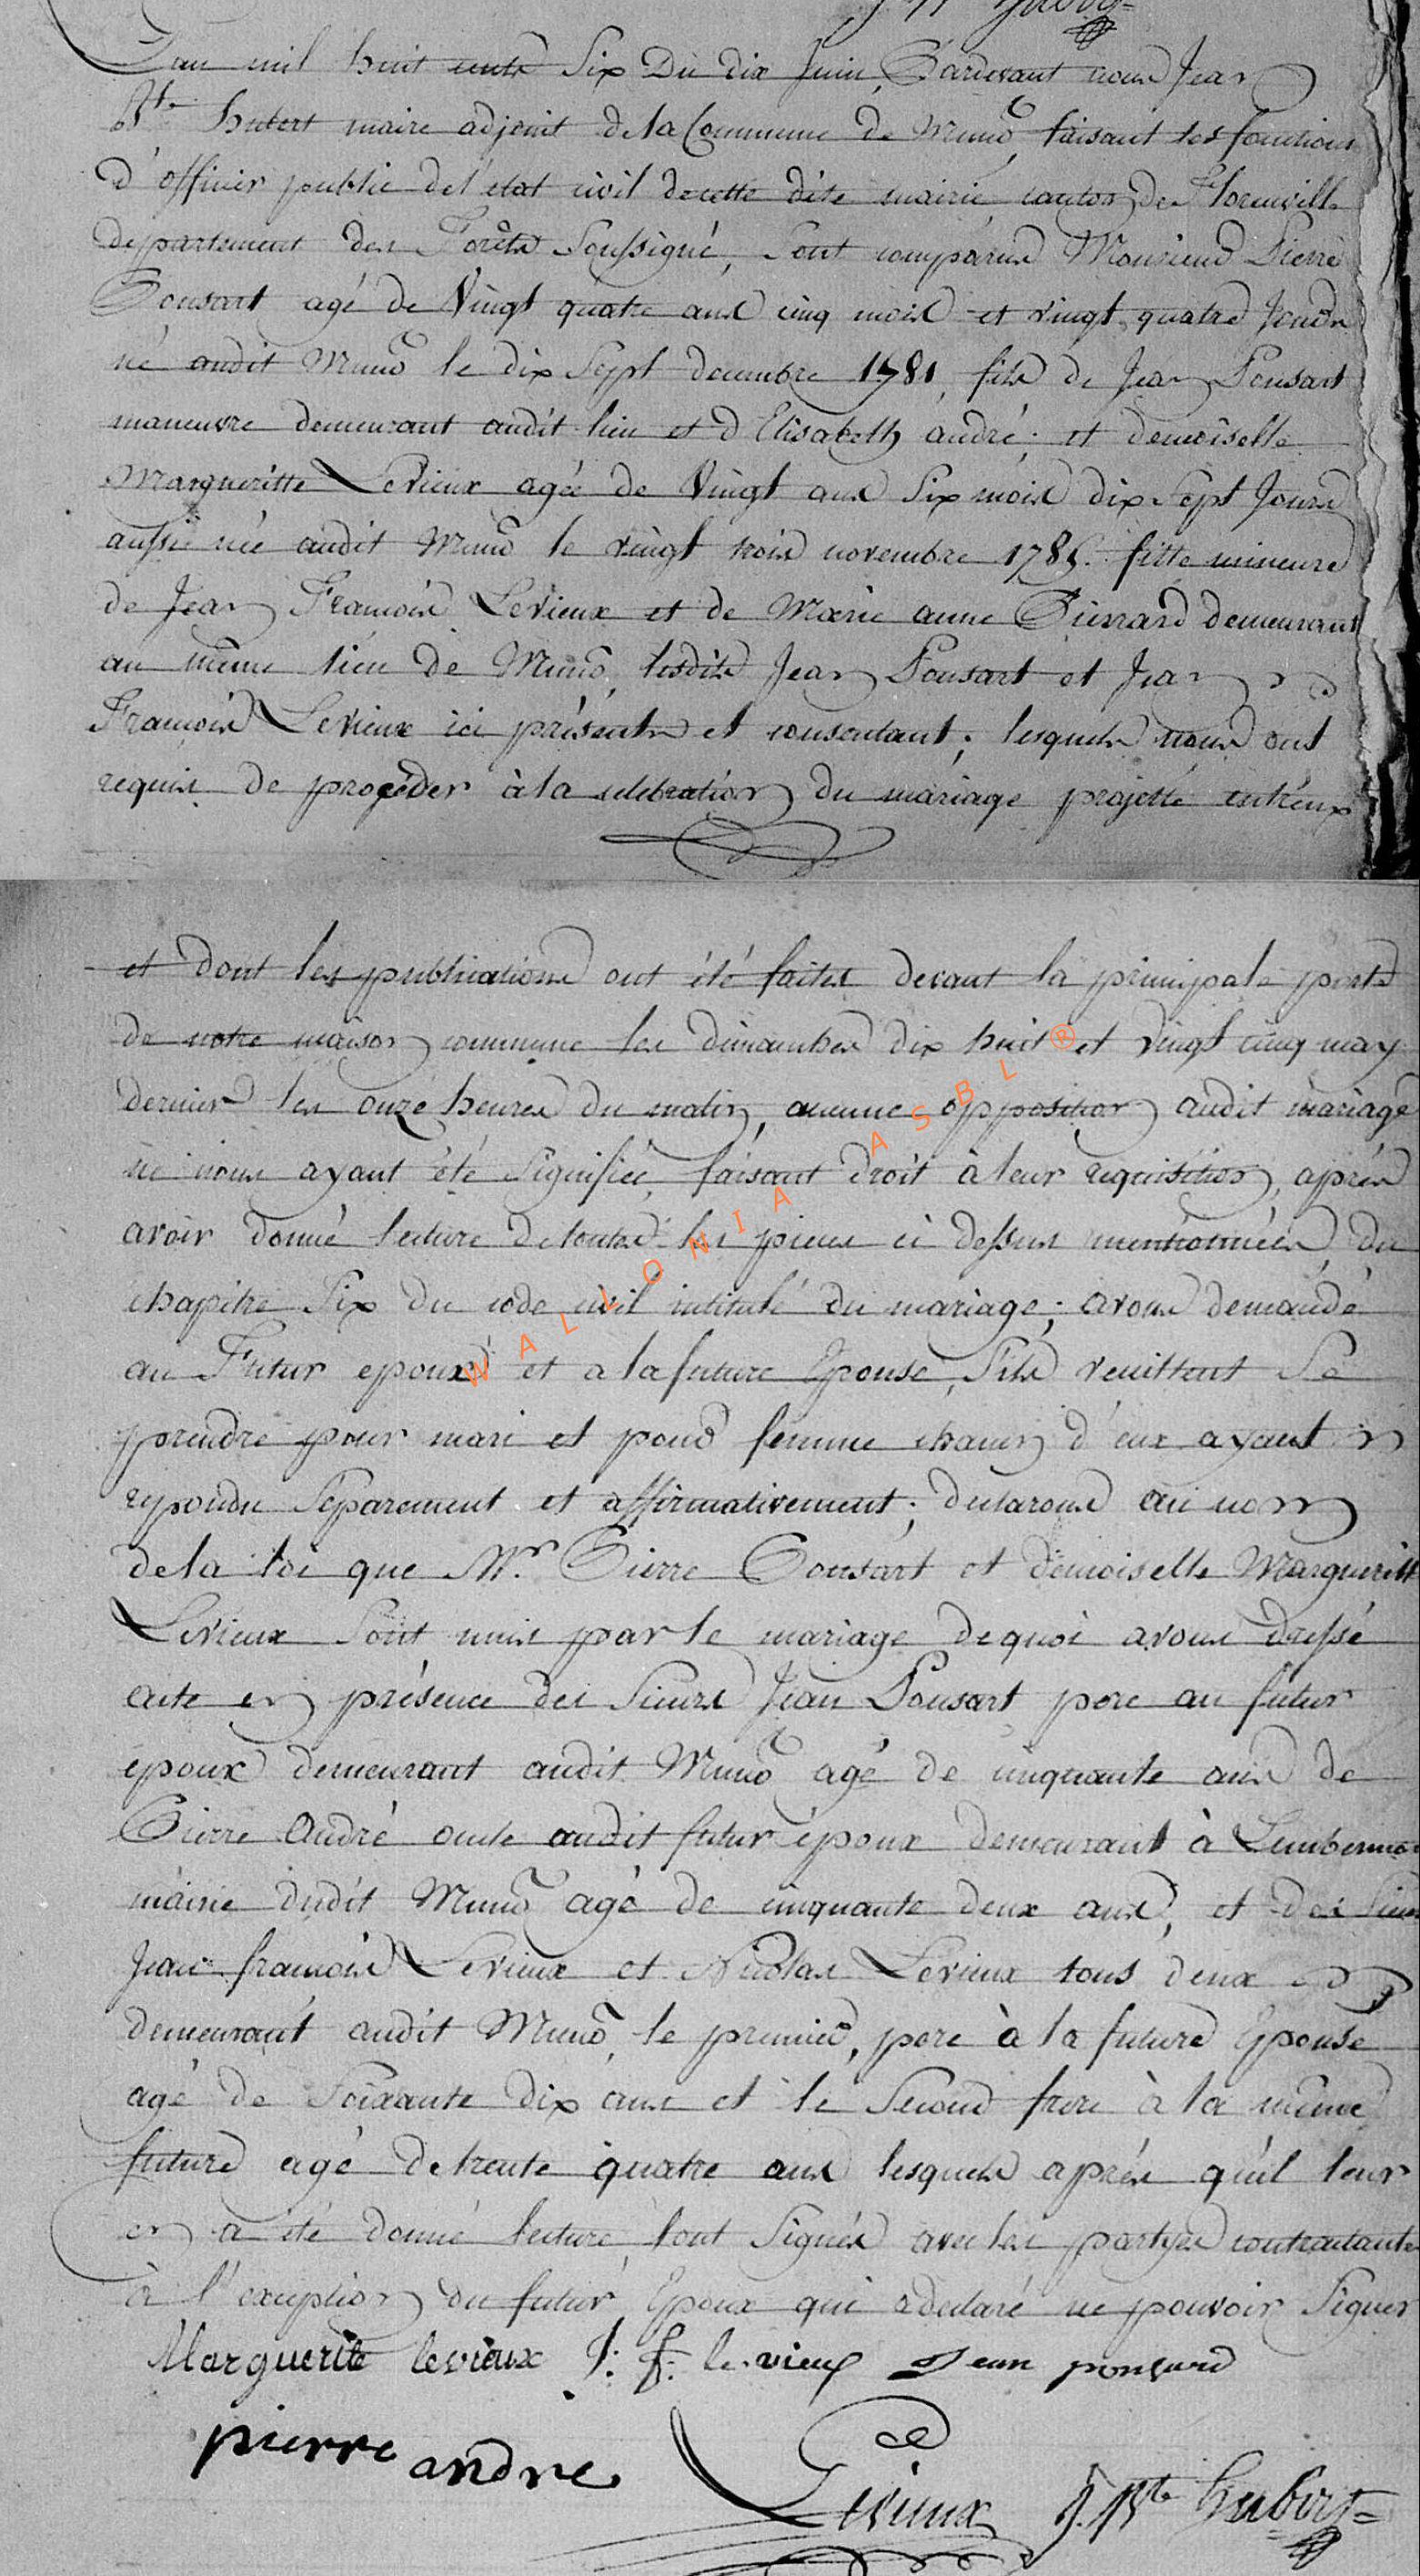 J Bte hubert
L'an mil huit cents Six Du dix Juin, Pardevant nous Jean
Bte hubert maire adjoint de la Commune de Muno, faisant les fonctions
d'officier public de l'etat civil de cette dite mairie, canton de Florenville
departement des Forêts Soussigné, Sont comparus Monsieur Pierre
Ponsart agé de Vingt quatre ans cinq mois et vingt quatre Jours
né audit Muno le dix Sept decembre 1781, fils de Jean Ponsart
maneuvre demeurant audit lieu et d'Elisabeth andré; et demoiselle
Margueritte Levieux agée de Vingt ans Six mois dix Sept Jours
aussi née audit Muno le vingt trois novembre 1785. fille mineure
de Jean François Levieux et de Marie anne Pierrard demeurant
au même lieu de Muno, lesdits Jean Ponsart et Jean
François Levieux ici présents et consentant; lesquels nous ont
requis de procéder à la celebration du mariage projetté entr'eux
et dont les publications ont été faites devant la principale porte
de notre maison commune les dimanches dix huit et vingt cinq may
dernier les onze heures du matin, aucune opposition audit mariage
ne nous ayant été Signifiée, faisant droit à leur requisition, après
avoir donné lecture de toutes les pieces ci dessus mentionnées, du
chapitre Six du code civil intitulé du mariage; avons demandé
au Futur epoux et a la future Epouse, S'ils veuillent Se
prendre pour mari et pour femme chacun d'eux ayant
repondu Séparement et affirmativement; declarons au nom
de la loi que Mr. Pierre Ponsart et demoiselle Margueritte
Levieux Sont unis par le mariage de quoi avons dressé
acte en présence des Sieurs Jean Ponsart pere au futur
epoux demeurant audit Muno agé de cinquante ans de
Pierre André oncle audit futur époux demeurant à Lambermon
mairie dudit Muno agé de cinquante deux ans, et des Sieurs
Jean françois Levieux et Nicolas Levieux tous deux
demeurant audit Muno, le premier, pere à la future Epouse
agé de Soixante dix ans et le Second frere à la même
future agé de trente quatre ans lesquels après qu'il leur
en a été donné lecture, l'ont Signés avec les partyes contractantes
à l'exception du futur Epoux qui a declaré ne pouvoir Signer
Marguerite levieux J: f: le vieux Jean ponsard
pierre andre Levieux J. Bte hubert
WALLONIA ASBL ®